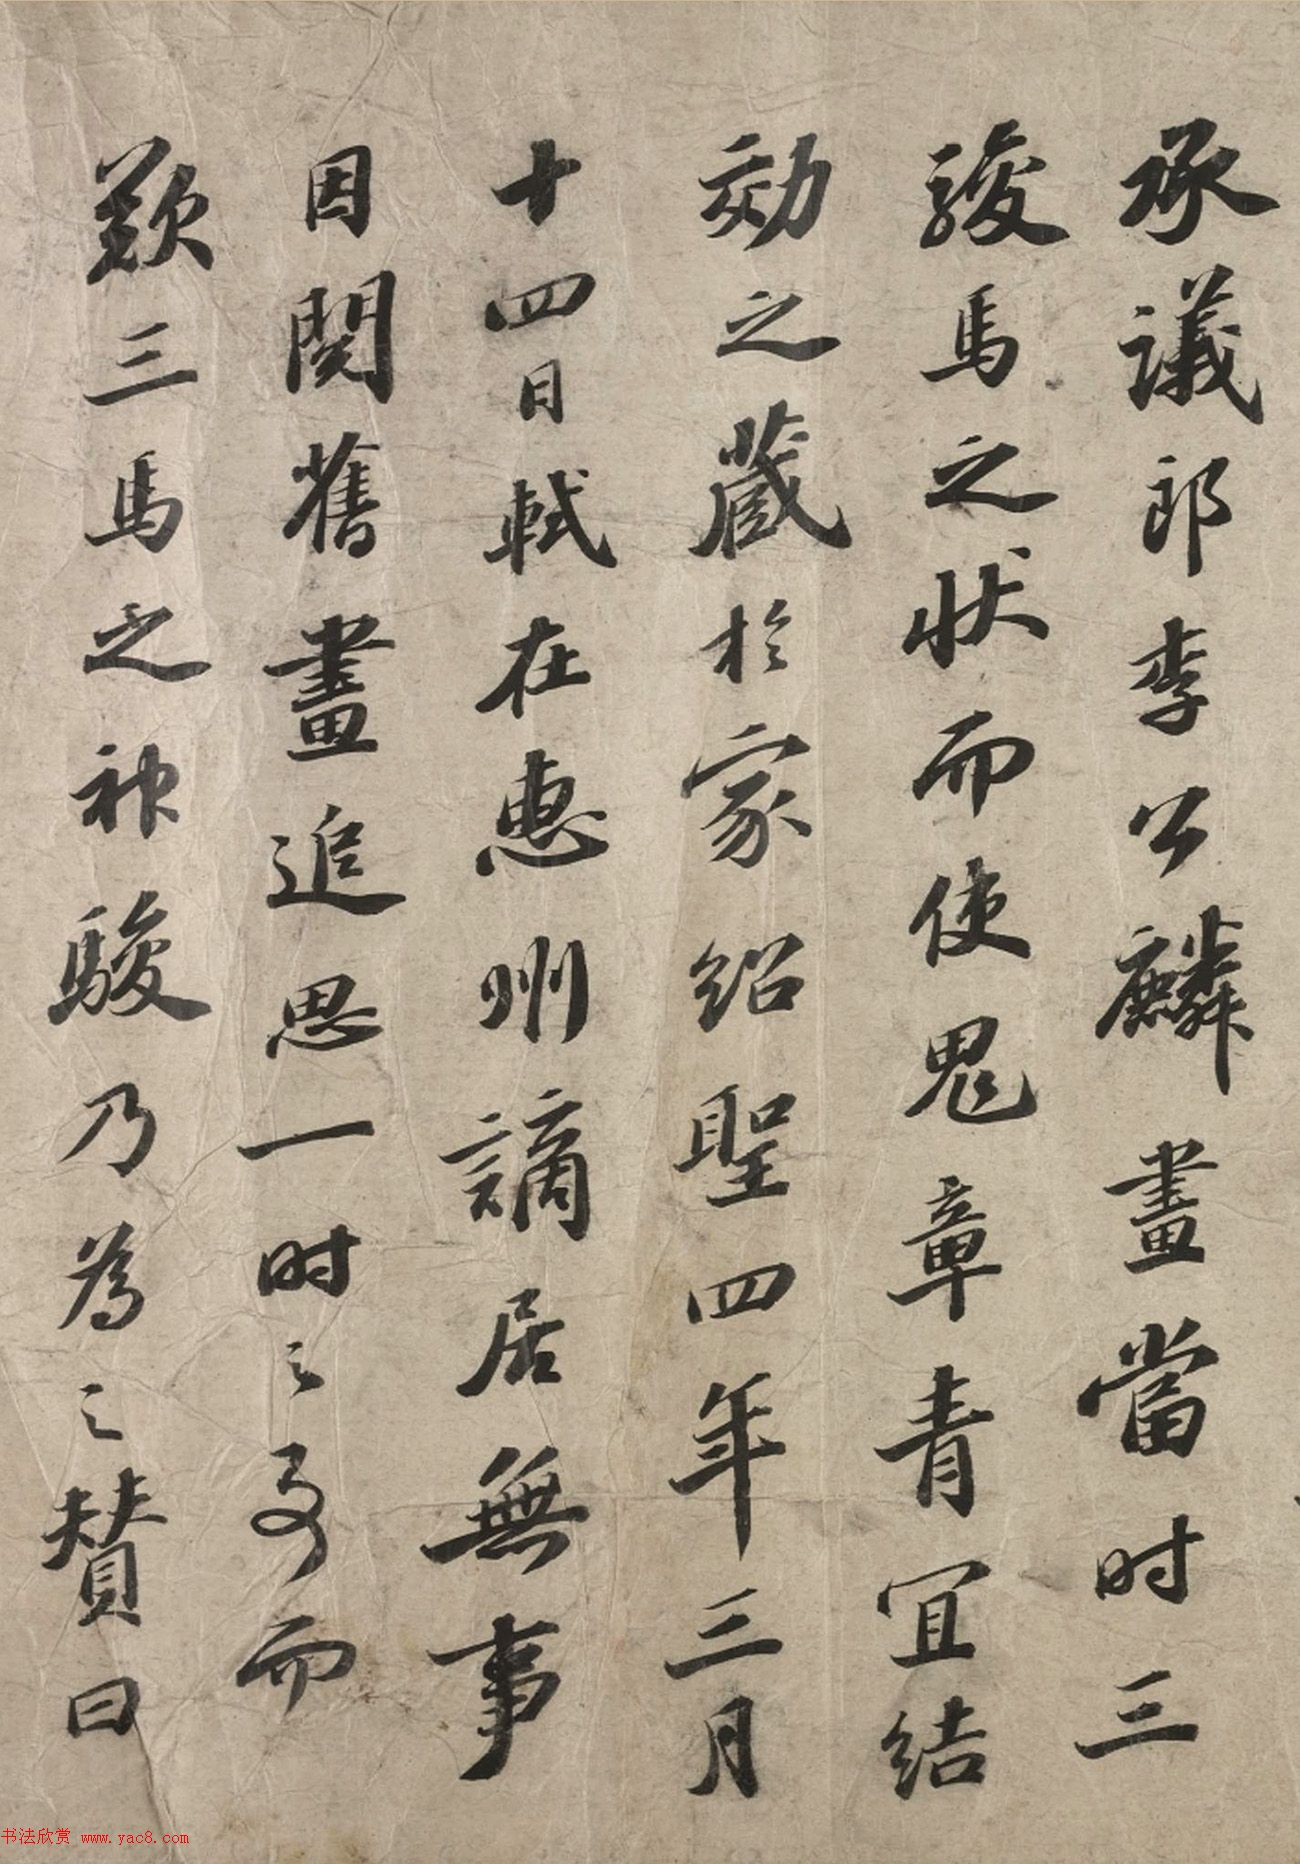 承議郎李公麟畫當时三
駿馬之状而使鬼章青宜结
効之蔵於家绍聖四年三月
十四日軾在惠州謫居無事
因閱舊畫追思一时之事而
歎三馬之神駿乃為之賛曰
书法欣赏 www.yac8.com